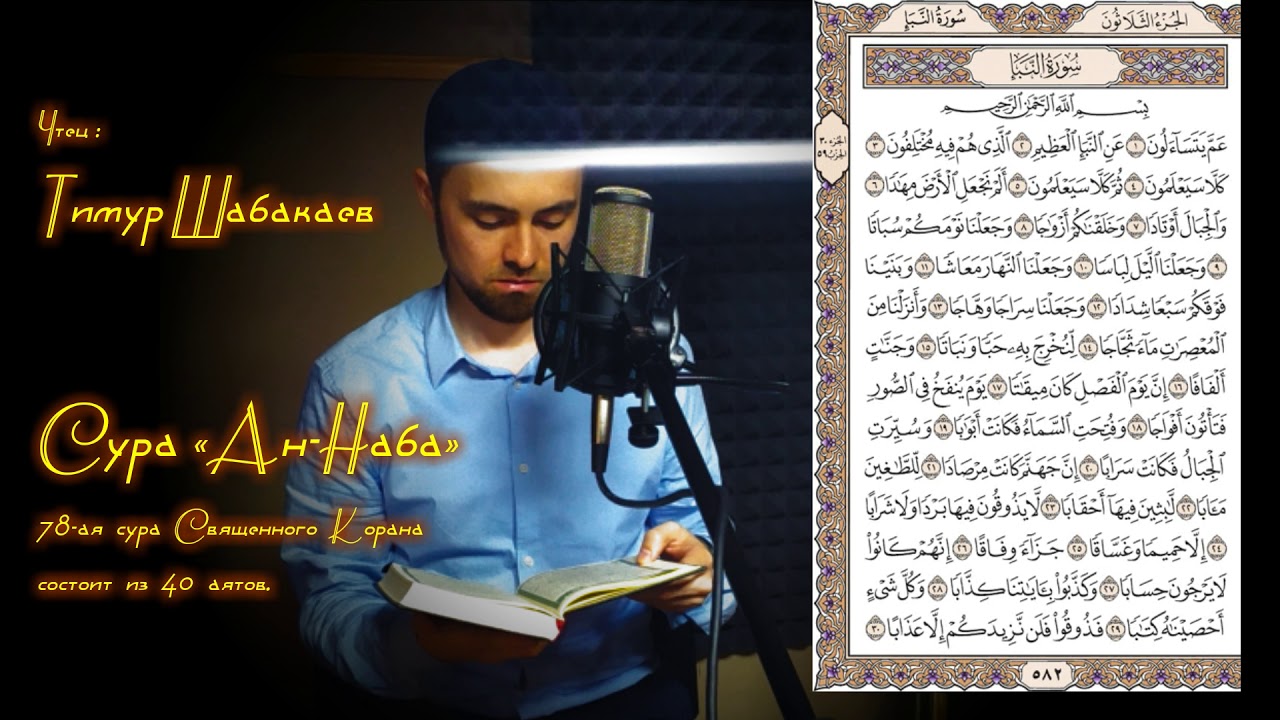 Чтец:
Тимур Шабакаев
Сура «Ан-Наба»
78-ая сура Священного Корана
состоит из 40 аятов.
سُورَةُ النَّبَإِ
الجُزْءُ الثَّلَاثُونَ
سُورَةُ النَّبَإِ
الجزء ٣٠
الحزب ٥٩
بِسْمِ اللَّهِ الرَّحْمَٰنِ الرَّحِيمِ
عَمَّ يَتَسَاءَلُونَ ١ عَنِ النَّبَإِ الْعَظِيمِ ٢ الَّذِى هُمْ فِيهِ مُخْتَلِفُونَ ٣
كَلَّا سَيَعْلَمُونَ ٤ ثُمَّ كَلَّا سَيَعْلَمُونَ ٥ أَلَمْ نَجْعَلِ الْأَرْضَ مِهَٰدًا ٦
وَالْجِبَالَ أَوْتَادًا ٧ وَخَلَقْنَٰكُمْ أَزْوَٰجًا ٨ وَجَعَلْنَا نَوْمَكُمْ سُبَاتًا
٩ وَجَعَلْنَا الَّيْلَ لِبَاسًا ١٠ وَجَعَلْنَا النَّهَارَ مَعَاشًا ١١ وَبَنَيْنَا
فَوْقَكُمْ سَبْعًا شِدَادًا ١٢ وَجَعَلْنَا سِرَاجًا وَهَّاجًا ١٣ وَأَنزَلْنَا مِنَ
الْمُعْصِرَٰتِ مَآءً ثَجَّاجًا ١٤ لِّنُخْرِجَ بِهِۦ حَبًّا وَنَبَاتًا ١٥ وَجَنَّٰتٍ
أَلْفَافًا ١٦ إِنَّ يَوْمَ الْفَصْلِ كَانَ مِيقَٰتًا ١٧ يَوْمَ يُنفَخُ فِى الصُّورِ
فَتَأْتُونَ أَفْوَاجًا ١٨ وَفُتِحَتِ السَّمَآءُ فَكَانَتْ أَبْوَٰبًا ١٩ وَسُيِّرَتِ
الْجِبَالُ فَكَانَتْ سَرَابًا ٢٠ إِنَّ جَهَنَّمَ كَانَتْ مِرْصَادًا ٢١ لِّلطَّٰغِينَ
مَـَٔابًا ٢٢ لَّٰبِثِينَ فِيهَآ أَحْقَابًا ٢٣ لَّا يَذُوقُونَ فِيهَا بَرْدًا وَلَا شَرَابًا
٢٤ إِلَّا حَمِيمًا وَغَسَّاقًا ٢٥ جَزَآءً وِفَاقًا ٢٦ إِنَّهُمْ كَانُوا۟
لَا يَرْجُونَ حِسَابًا ٢٧ وَكَذَّبُوا۟ بِـَٔايَٰتِنَا كِذَّابًا ٢٨ وَكُلَّ شَىْءٍ
أَحْصَيْنَٰهُ كِتَٰبًا ٢٩ فَذُوقُوا۟ فَلَن نَّزِيدَكُمْ إِلَّا عَذَابًا ٣٠
٥٨٢